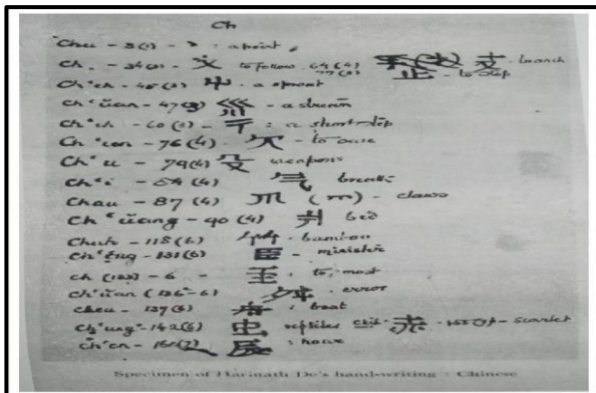 Ch
Chu - 3(1) - 丶 : a point
Ch. - 34(3) - 夂 to follow. 64(4) 支 branch
77(4) 止 - to stop
Ch'ch - 45(3) 屮 . a sprout
Ch'üan - 47(3) 巛 - a stream
Ch'ch - 60(3) - 彳 : a short step
Ch'uen - 76(4) - 欠 - to owe
Ch'u - 79(4) 殳 weapons
Ch'i - 84(4) 气 breath
Chau - 87 (4) 爪 (爫) - claws
Ch'üang - 90 (4) 爿 bed
Chuh - 118(6) 竹 - bamboo
Ch'ĕng - 131(6) 臣 - minister
ch (133) - 6 - 至 : to, most
Ch'üan (136-6) 舛 . error
cheu - 137(6) 舟 : boat
Ch'ung - 142(6) 虫 reptiles 赤 - 155(7) - scarlet
Ch'en - 161(7) 辰 : hour
Specimen of Harinath De's hand-writing : Chinese